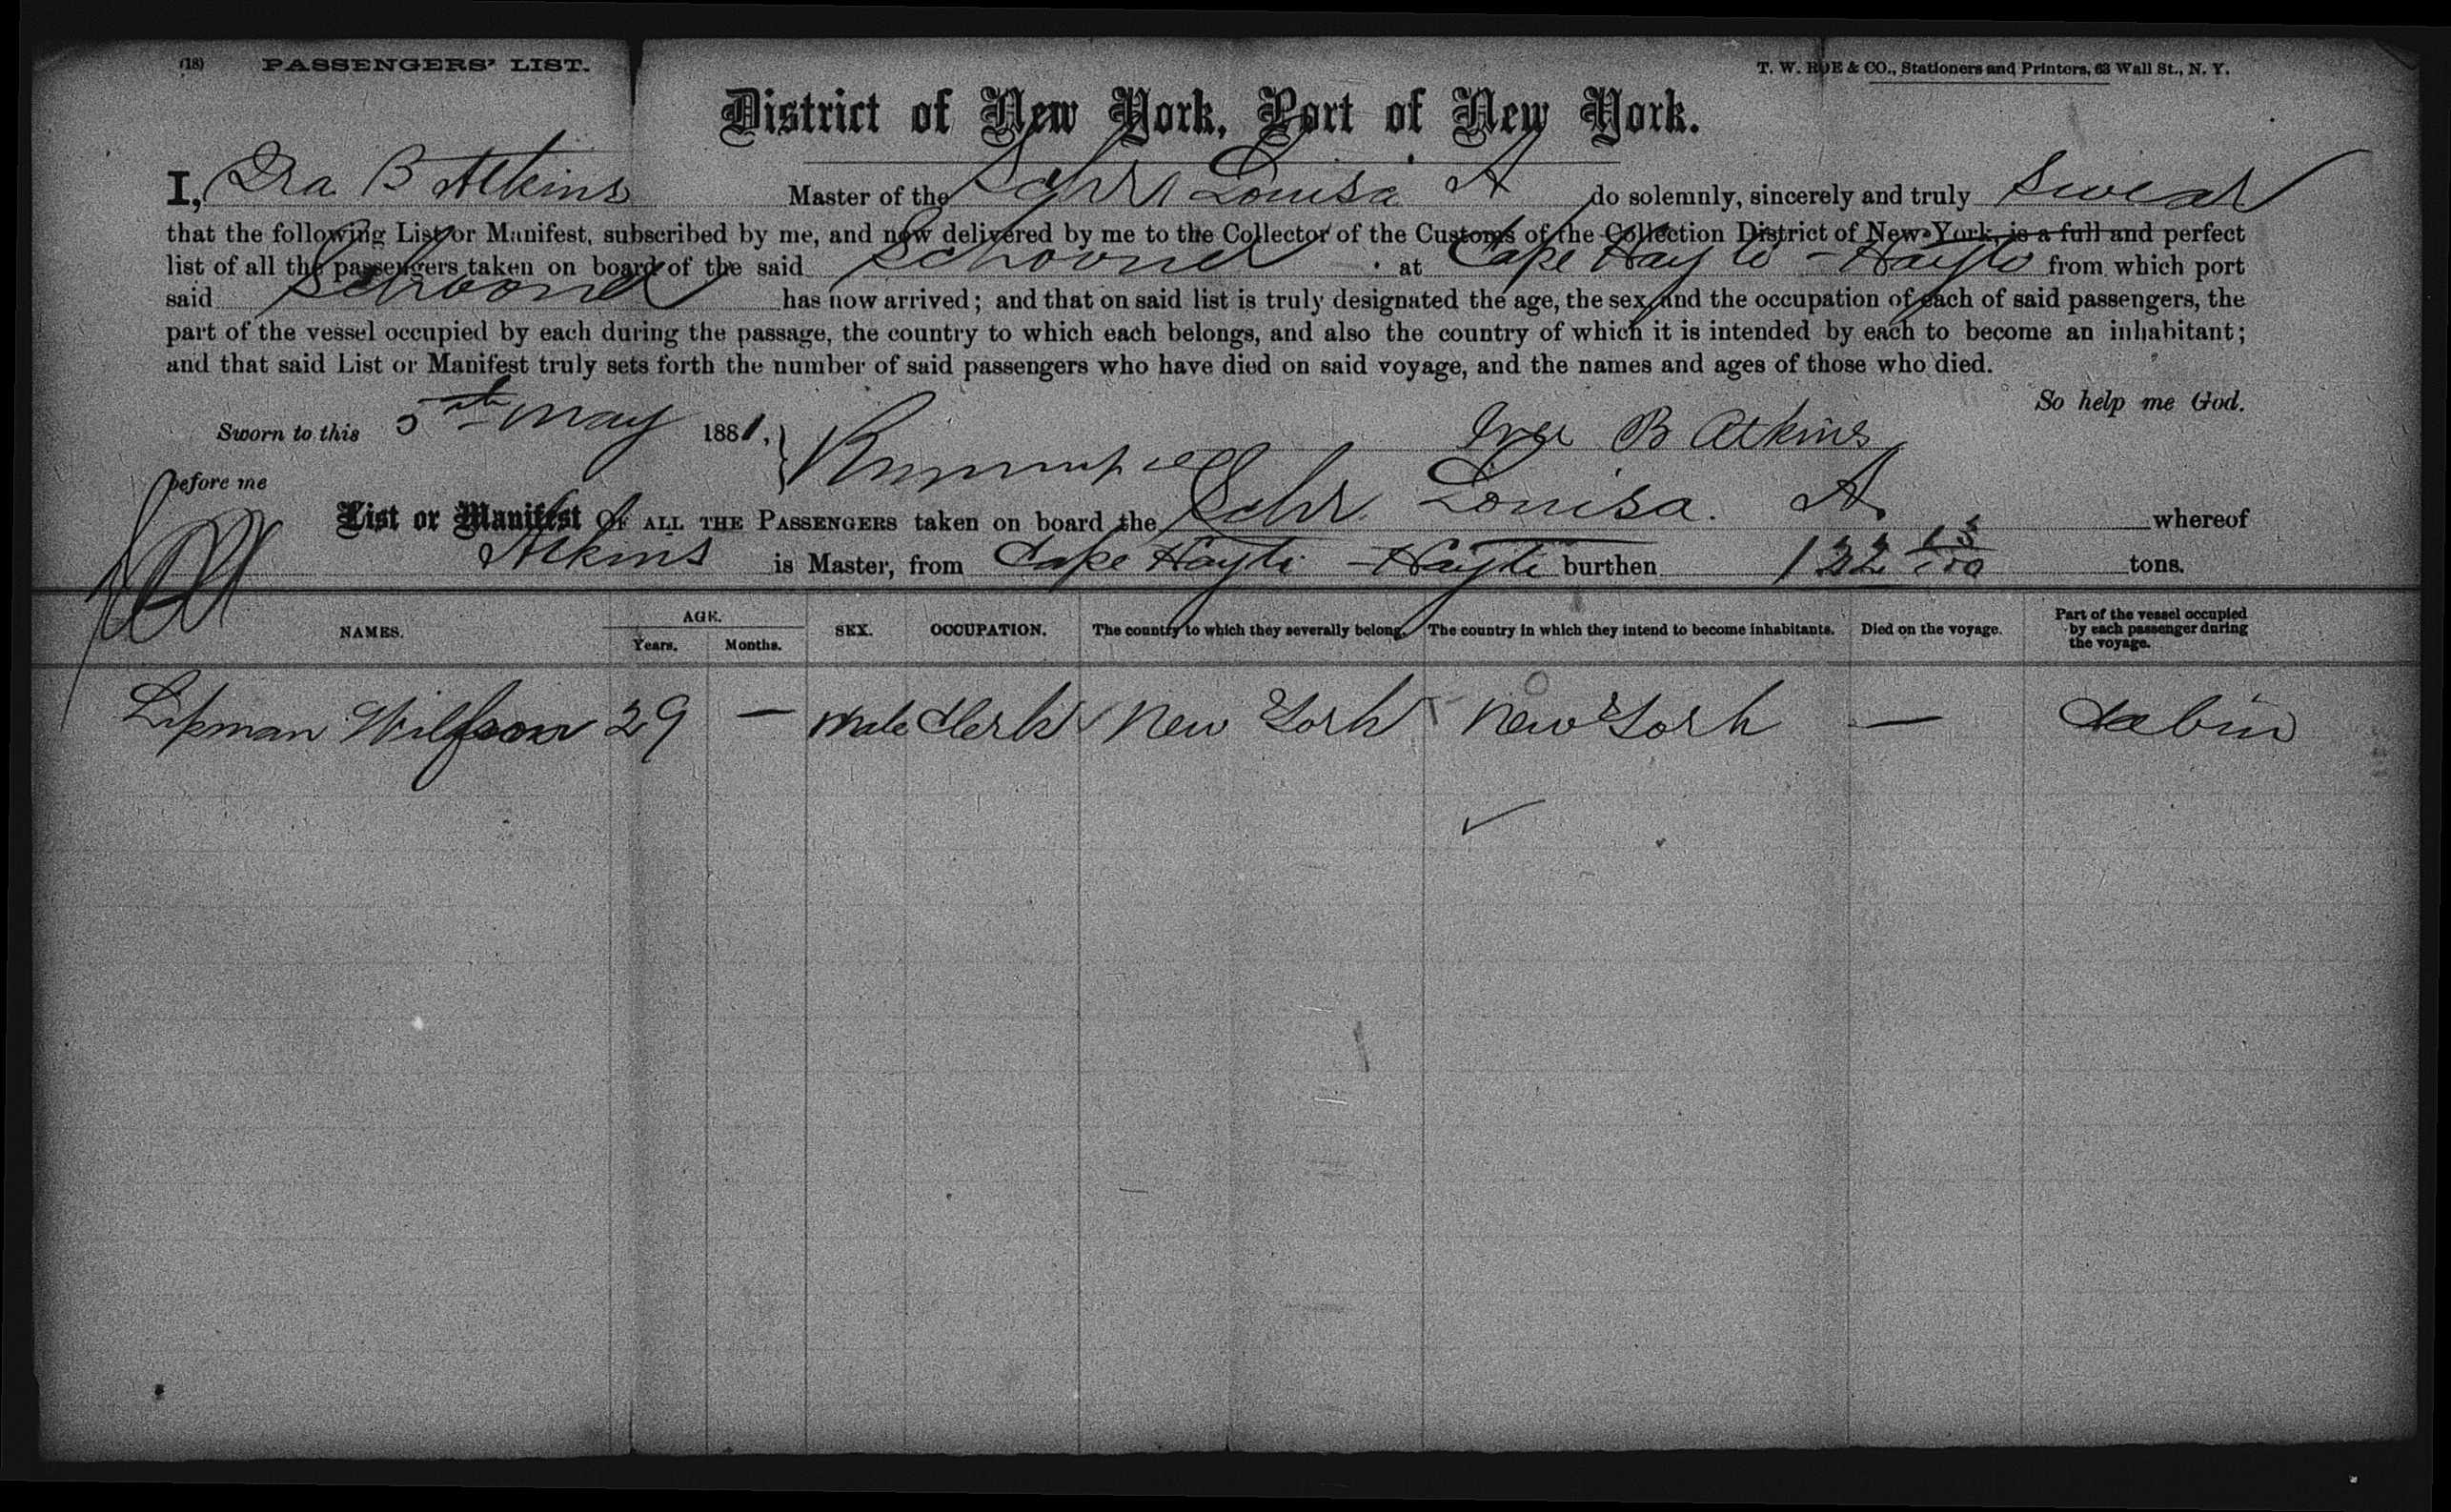 (18) PASSENGERS' LIST. T. W. ROE & CO., Stationers and Printers, 63 Wall St., N. Y.
District of New York, Port of New York.
I, Ira B Atkins Master of the Schr Louisa A do solemnly, sincerely and truly swear
that the following List or Manifest, subscribed by me, and now delivered by me to the Collector of the Customs of the Collection District of New-York, is a full and perfect
list of all the passengers taken on board of the said Schooner at Cape Hayti - Hayti from which port
said Schooner has now arrived; and that on said list is truly designated the age, the sex, and the occupation of each of said passengers, the
part of the vessel occupied by each during the passage, the country to which each belongs, and also the country of which it is intended by each to become an inhabitant;
and that said List or Manifest truly sets forth the number of said passengers who have died on said voyage, and the names and ages of those who died.
So help me God.
Sworn to this 5th May 1881, Ira B Atkins
before me
List or Manifest OF ALL THE PASSENGERS taken on board the Schr Louisa. A. whereof
Atkins is Master, from Cape Hayti - Hayti burthen 122 tons.
NAMES. AGE. SEX. OCCUPATION. The country to which they severally belong. The country in which they intend to become inhabitants. Died on the voyage. Part of the vessel occupied by each passenger during the voyage.
Years. Months.
Lipman Wilfson 29 — Male Clerk New York New York — Cabin